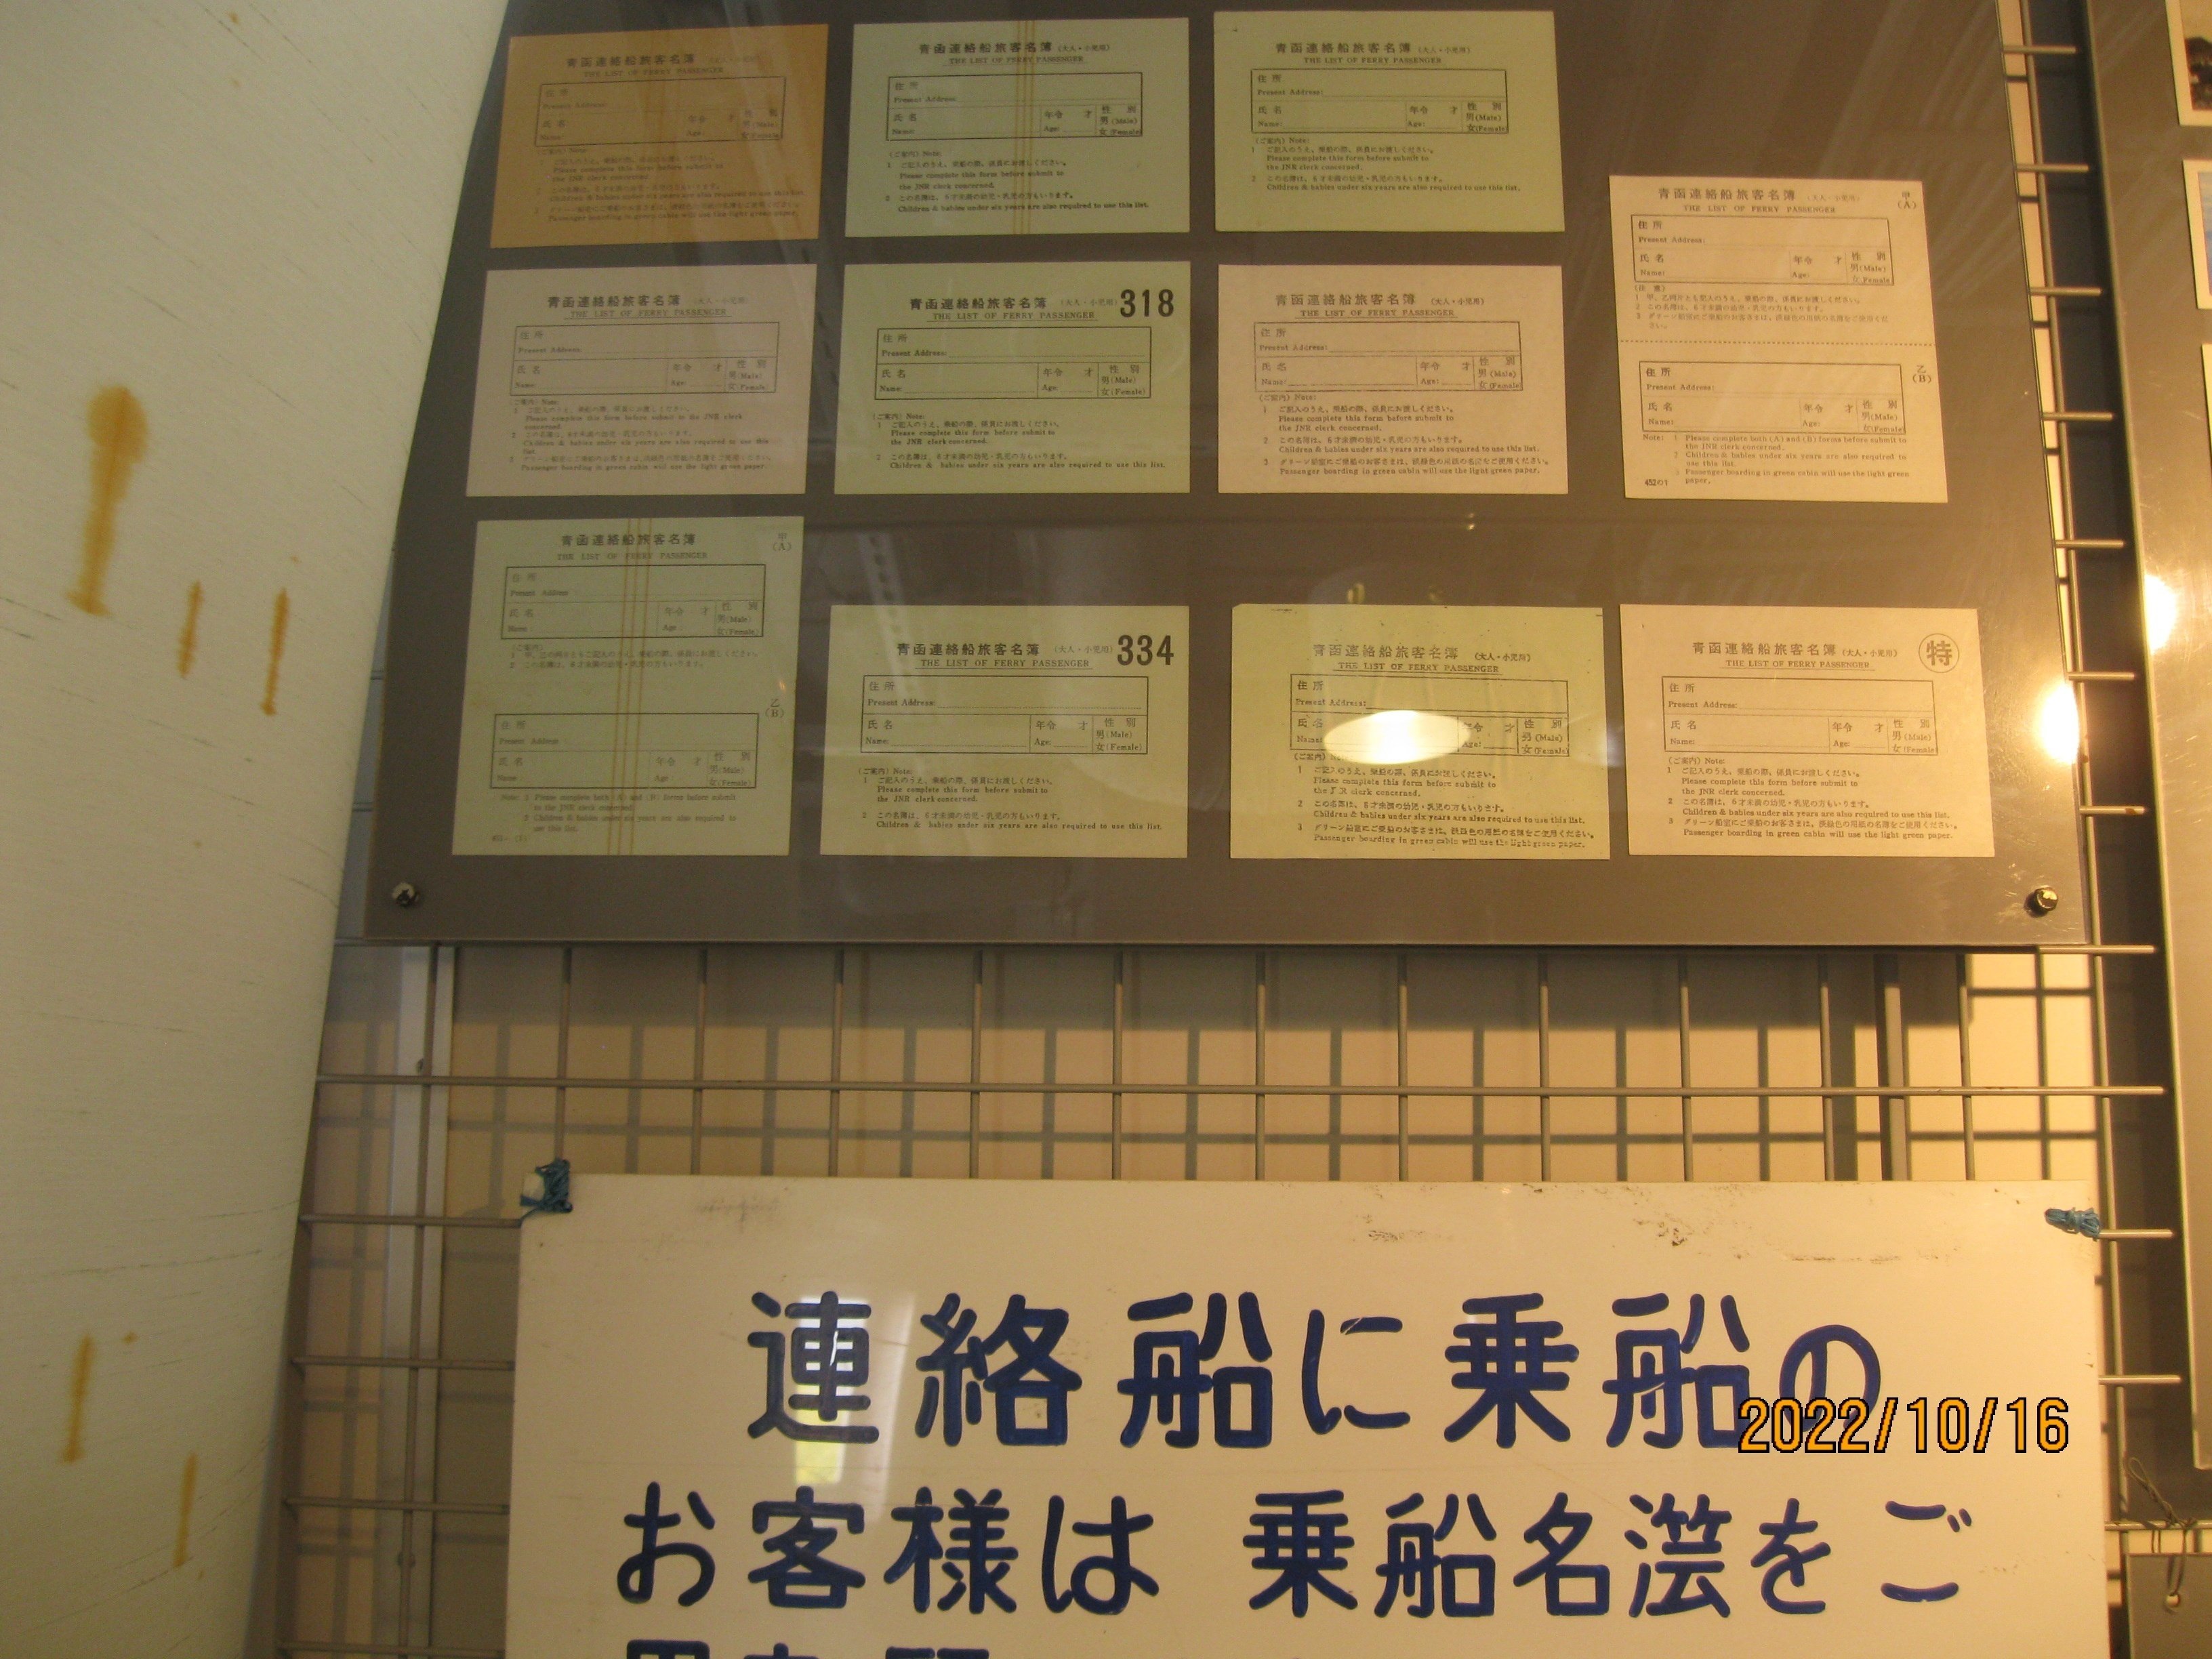 青函連絡船旅客名簿
THE LIST OF FERRY PASSENGER
住所
Present Address:
氏名 年令 才 性別
男(Male)
Name: Age: 女(Female)
(ご案内) Note:
1 ご記入のうえ、乗船の際、係員にお渡しください。
Please complete this form before submit to
the JNR clerk concerned.
2 この名簿は、6才未満の幼児・乳児の方もいります。
Children & babies under six years are also required to use this list.
Passenger boarding in green cabin will use the light green paper.
青函連絡船旅客名簿 (大人・小児用)
THE LIST OF FERRY PASSENGER
住所
Present Address:
氏名 年令 才 性別
男(Male)
Name: Age: 女(Female)
(ご案内) Note:
1 ご記入のうえ、乗船の際、係員にお渡しください。
Please complete this form before submit to
the JNR clerk concerned.
2 この名簿は、6才未満の幼児・乳児の方もいります。
Children & babies under six years are also required to use this list.
青函連絡船旅客名簿 (大人・小児用)
THE LIST OF FERRY PASSENGER
住所
Present Address:
氏名 年令 才 性別
男(Male)
Name: Age: 女(Female)
(ご案内) Note:
1 ご記入のうえ、乗船の際、係員にお渡しください。
Please complete this form before submit to
the JNR clerk concerned.
2 この名簿は、6才未満の幼児・乳児の方もいります。
Children & babies under six years are also required to use this list.
青函連絡船旅客名簿 (大人・小児用) 甲
THE LIST OF FERRY PASSENGER (A)
住所
Present Address:
氏名 年令 才 性別
男(Male)
Name: Age: 女(Female)
1 甲、乙両片とも記入のうえ、乗船の際、係員にお渡しください。
2 この名簿は、6才未満の幼児・乳児の方もいります。
3 グリーン船室にご乗船のお客さまは、淡緑色の用紙の名簿をご使用くだ
さい。
乙
(B)
住所
Present Address:
氏名 年令 才 性別
男(Male)
Name: Age: 女(Female)
Note: 1 Please complete both (A) and (B) forms before submit to
the JNR clerk concerned.
2 Children & babies under six years are also required to
use this list.
3 Passenger boarding in green cabin will use the light green
paper.
青函連絡船旅客名簿 (大人・小児用)
THE LIST OF FERRY PASSENGER
住所
Present Address:
氏名 年令 才 性別
男(Male)
Name: Age: 女(Female)
(ご案内) Note:
1 ご記入のうえ、乗船の際、係員にお渡しください。
Please complete this form before submit to the JNR clerk
concerned.
2 この名簿は、6才未満の幼児・乳児の方もいります。
Children & babies under six years are also required to use this
list.
3 グリーン船室にご乗船のお客さまは、淡緑色の用紙の名簿をご使用ください。
Passenger boarding in green cabin will use the light green paper.
青函連絡船旅客名簿 (大人・小児用) 318
THE LIST OF FERRY PASSENGER
住所
Present Address:
氏名 年令 才 性別
男(Male)
Name: Age: 女(Female)
(ご案内) Note:
1 ご記入のうえ、乗船の際、係員にお渡しください。
Please complete this form before submit to
the JNR clerk concerned.
2 この名簿は、6才未満の幼児・乳児の方もいります。
Children & babies under six years are also required to use this list.
青函連絡船旅客名簿 (大人・小児用)
THE LIST OF FERRY PASSENGER
住所
Present Address:
氏名 年令 才 性別
男(Male)
Name: Age: 女(Female)
(ご案内) Note:
1 ご記入のうえ、乗船の際、係員にお渡しください。
Please complete this form before submit to
the JNR clerk concerned.
2 この名簿は、6才未満の幼児・乳児の方もいります。
Children & babies under six years are also required to use this list.
3 グリーン船室にご乗船のお客さまは、淡緑色の用紙の名簿をご使用ください。
Passenger boarding in green cabin will use the light green paper.
青函連絡船旅客名簿 甲
THE LIST OF FERRY PASSENGER (A)
住所
Present Address
氏名 年令 才 性別
男(Male)
Name: Age: 女(Female)
2 この名簿は、6才未満の幼児・乳児の方もいります。
乙
(B)
住所
Present Address
氏名 年令 才 性別
男(Male)
Name: Age: 女(Female)
Note: 1 Please complete both (A) and (B) forms before submit
to the JNR clerk concerned.
2 Children & babies under six years are also required to
use this list.
青函連絡船旅客名簿 (大人・小児用) 334
THE LIST OF FERRY PASSENGER
住所
Present Address:
氏名 年令 才 性別
男(Male)
Name: Age: 女(Female)
(ご案内) Note:
1 ご記入のうえ、乗船の際、係員にお渡しください。
Please complete this form before submit to
the JNR clerk concerned.
2 この名簿は、6才未満の幼児・乳児の方もいります。
Children & babies under six years are also required to use this list.
青函連絡船旅客名簿 (大人・小児用)
THE LIST OF FERRY PASSENGER
住所
Present Address:
氏名 才 性別
男(Male)
Name: Age: 女(Female)
(ご案内)
1 ご記入のうえ、乗船の際、係員にお渡しください。
Please complete this form before submit to
the clerk concerned.
2 この名簿は、6才未満の幼児・乳児の方もいります。
Children & babies under six years are also required to use this list.
3 グリーン船室にご乗船のお客さまは、淡緑色の用紙の名簿をご使用ください。
Passenger boarding in green cabin will use the light green paper.
青函連絡船旅客名簿 (大人・小児用) 特
THE LIST OF FERRY PASSENGER
住所
Present Address:
氏名 年令 才 性別
男(Male)
Name: Age: 女(Female)
(ご案内) Note:
1 ご記入のうえ、乗船の際、係員にお渡しください。
Please complete this form before submit to
the JNR clerk concerned.
2 この名簿は、6才未満の幼児・乳児の方もいります。
Children & babies under six years are also required to use this list.
3 グリーン船室にご乗船のお客さまは、淡緑色の用紙の名簿をご使用ください。
Passenger boarding in green cabin will use the light green paper.
連絡船に乗船の
お客様は 乗船名をご
2022/10/16